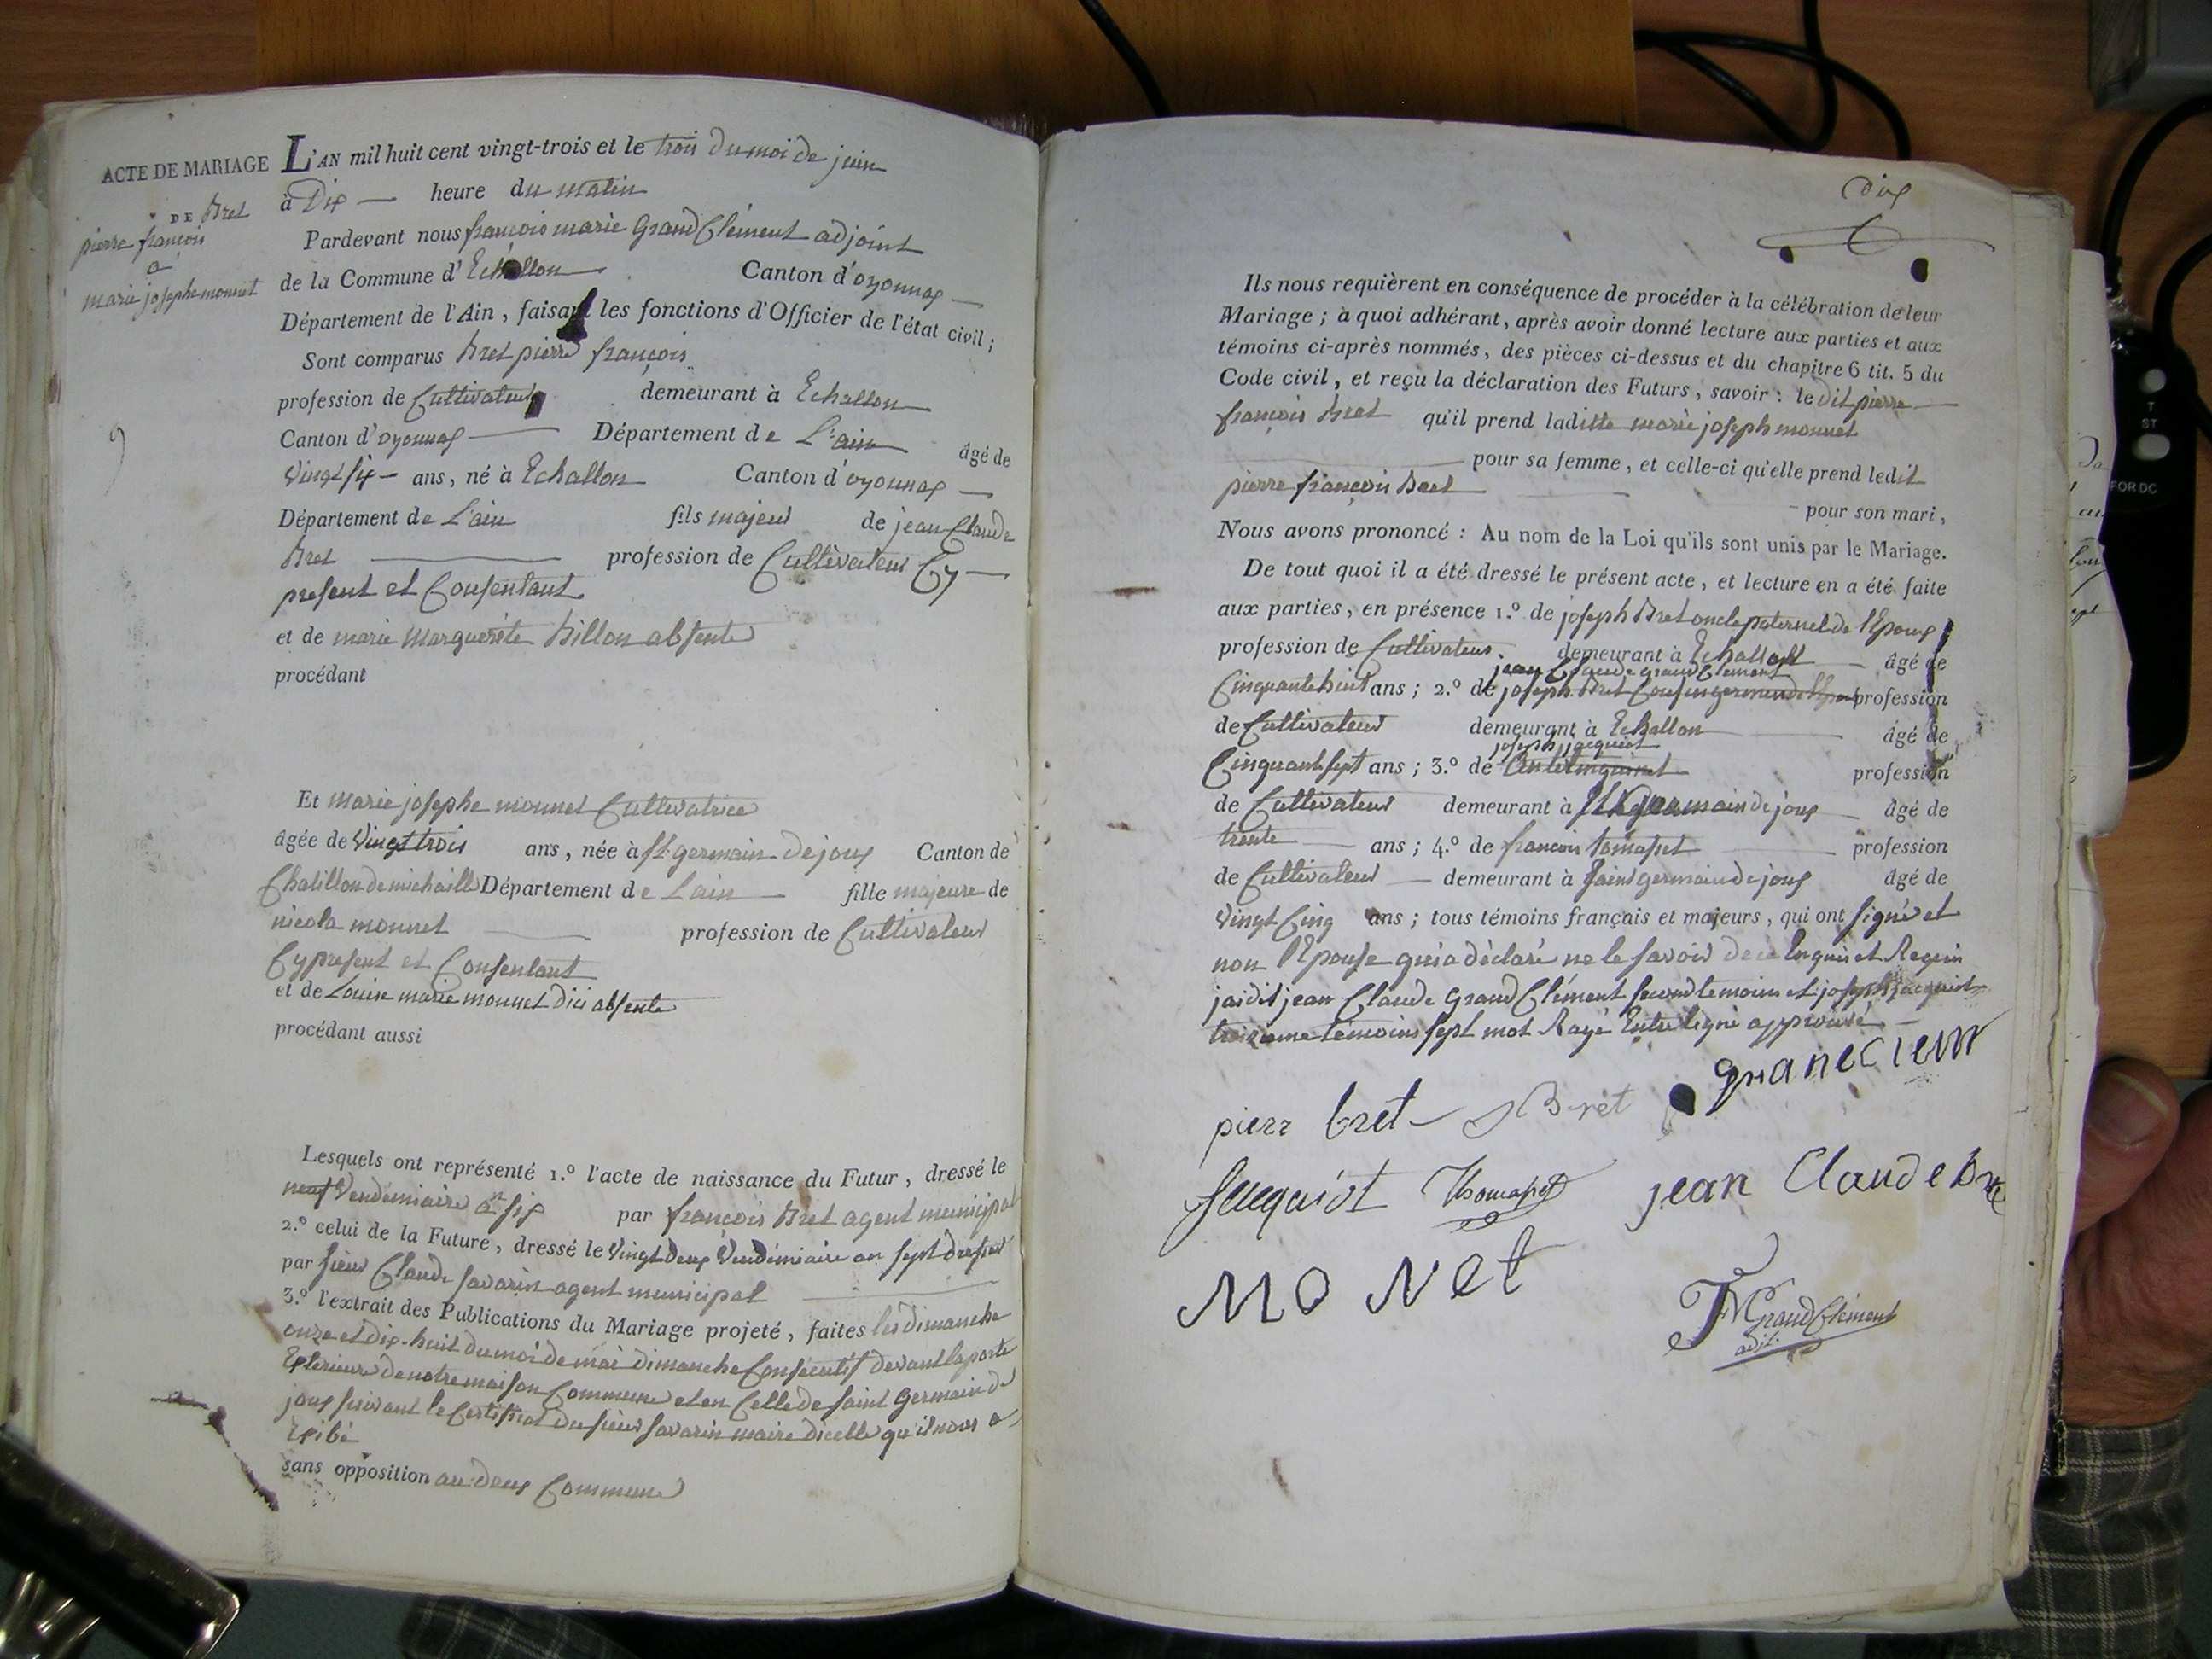 ACTE DE MARIAGE
DE Bret
pierre françois
a
marie josephe monnet
9
L'AN mil huit cent vingt-trois et le trois du moi de juin
à Dix heure du matin
Pardevant nous françois marie Grand Clément adjoint
de la Commune d'Echallon Canton d'oyonnax
Département de l'Ain, faisant les fonctions d'Officier de l'état civil;
Sont comparus Bret pierre françois
profession de Cultivateur demeurant à Echallon
Canton d'oyonnax Département de L'ain âgé de
vingt six ans, né à Echallon Canton d'oyonnax
Département de L'ain fils majeur de jean Claude
Bret profession de Cultivateur Cy
present et Consentant
et de marie Marguerite Billon absente
procédant
Et Marie josephe monnet Cultivatrice
âgée de vingt trois ans, née à St germain de joux Canton de
Chatillon de michaille Département de Lain fille majeure de
nicola monnet profession de Cultivateur
Cy present et Consentant
et de Louise marie monnet dici absente
procédant aussi
Lesquels ont représenté 1.º l'acte de naissance du Futur, dressé le
neuf Vendemiaire an six par françois Bret agent municipal
2.º celui de la Future, dressé le vingt Deux Vendémiaire an sept dressé
par sieur Claude Savarin agent municipal
3.º l'extrait des Publications du Mariage projeté, faites les dimanche
onze et dix-huit du moi de mai dimanche Consécutif devant la porte
Exterieure de notre maison Commune et en Celle de saint Germain de
joux suivant le Certificat du sieur Savarin maire dicelle qu'il nous a
Exibé
sans opposition au deux Commune
Dix
Ils nous requièrent en conséquence de procéder à la célébration de leur
Mariage; à quoi adhérant, après avoir donné lecture aux parties et aux
témoins ci-après nommés, des pièces ci-dessus et du chapitre 6 tit. 5 du
Code civil, et reçu la déclaration des Futurs, savoir: le dit pierre
françois Bret qu'il prend laditte marie joseph monnet
pour sa femme, et celle-ci qu'elle prend ledit
pierre françois Bret
pour son mari,
Nous avons prononcé: Au nom de la Loi qu'ils sont unis par le Mariage.
De tout quoi il a été dressé le présent acte, et lecture en a été faite
aux parties, en présence 1.º de joseph Bret oncle paternel de l'Epoux
profession de Cultivateur. demeurant à Echallon âgé de
jean Claude grand Clement
Cinquante huit ans; 2.º de joseph Bret Cousin germain de l'Epoux profession
de Cultivateur demeurant à Echallon âgé de
joseph jacquiot
Cinquant sept ans; 3.º de profession
de Cultivateur demeurant à germain de joux âgé de
trente ans; 4.º de francois tomasset profession
de Cultivateur demeurant à Saint germain de joux âgé de
vingt Cinq ans; tous témoins français et majeurs, qui ont signé et
non l'Epouse qui a déclaré ne le savoir de ce Enquis et Requis
jai dit jean Claude Grand Clément second temoins et joseph jacquiot
troizieme temoins sept mot Rayé Entre ligne approuvé
pierr bret Bret graneclem
Jacquiot Thomasset jean Claude bret
MO Net
FM Grand Clément
adj.